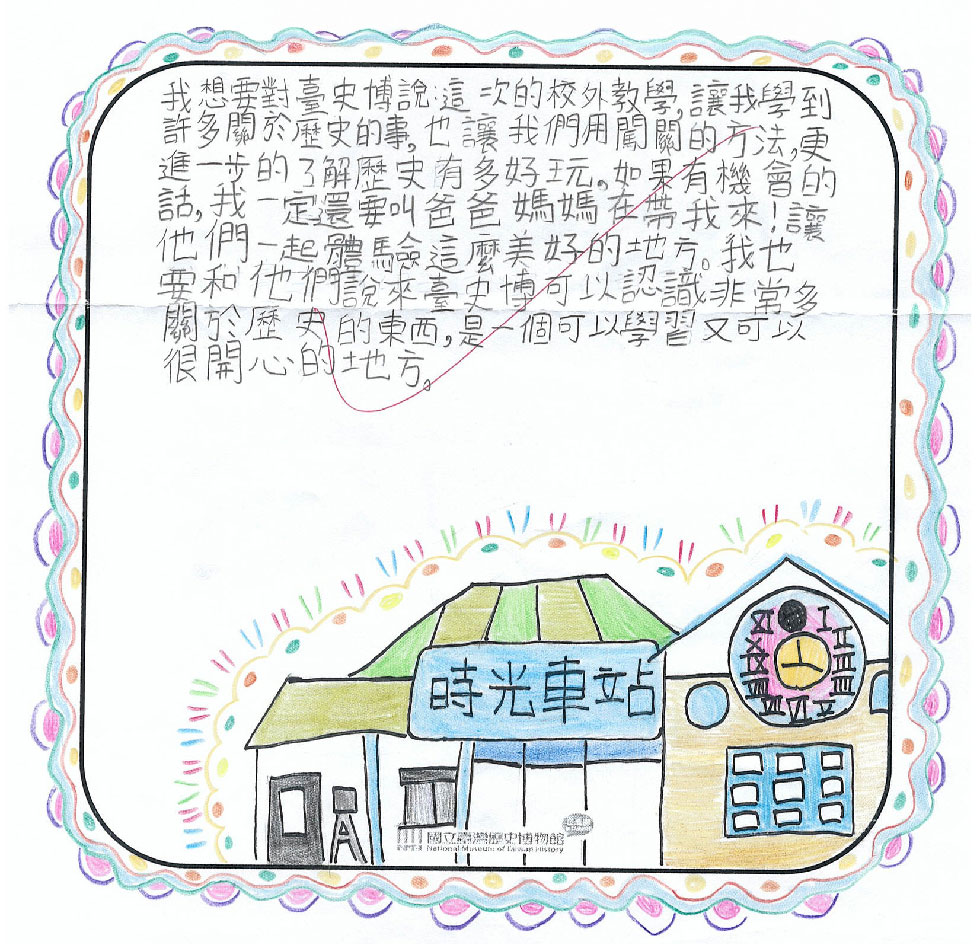 我想要對臺史博說:這一次的校外教學,讓我學到
許多關於歷史的事,也讓我們用闖關的方法,更
進一步的了解歷史有多好玩。如果有機會的
話,我一定還要叫爸爸媽媽在帶我來!讓
他們一起體驗這麼美好的地方。我也
要和他們說來臺史博可以認識非常多
關於歷史的東西,是一個可以學習又可以
很開心的地方。
時光車站
I II III
國立臺灣歷史博物館
National Museum of Taiwan History